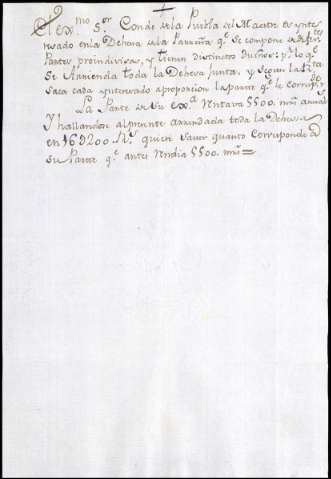 El ex.mo S.or Conde de la Puebla del Maestre es ynte
resado en la Dehesa de la q.e se compone de
Partes proindivisas, y tienen distinctos dueños: p.r lo q.e
se Arrienda toda la Dehesa junta, y segun la
saca cada ynteresado aproporcion la parte q.e le corresp.de
La Parte de su ex.a Rentava 5500. mrs anuales
Y hallandose alpresente arrendada toda la Dehesa
en 169200. Rs. quiere saver quanto corresponde a
su Parte q.e antes Rendia 5500. mrs =